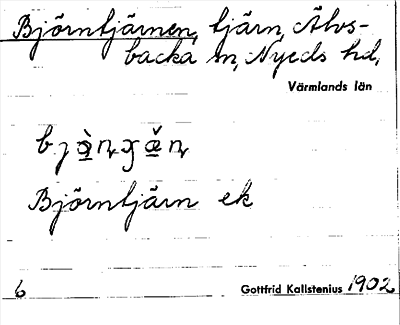 Björntjärnen, tjärn, Älvs-
backa sn, Nyeds hd,
Värmlands län
Björntjärn ek
6 Gottfrid Kallstenius 1902